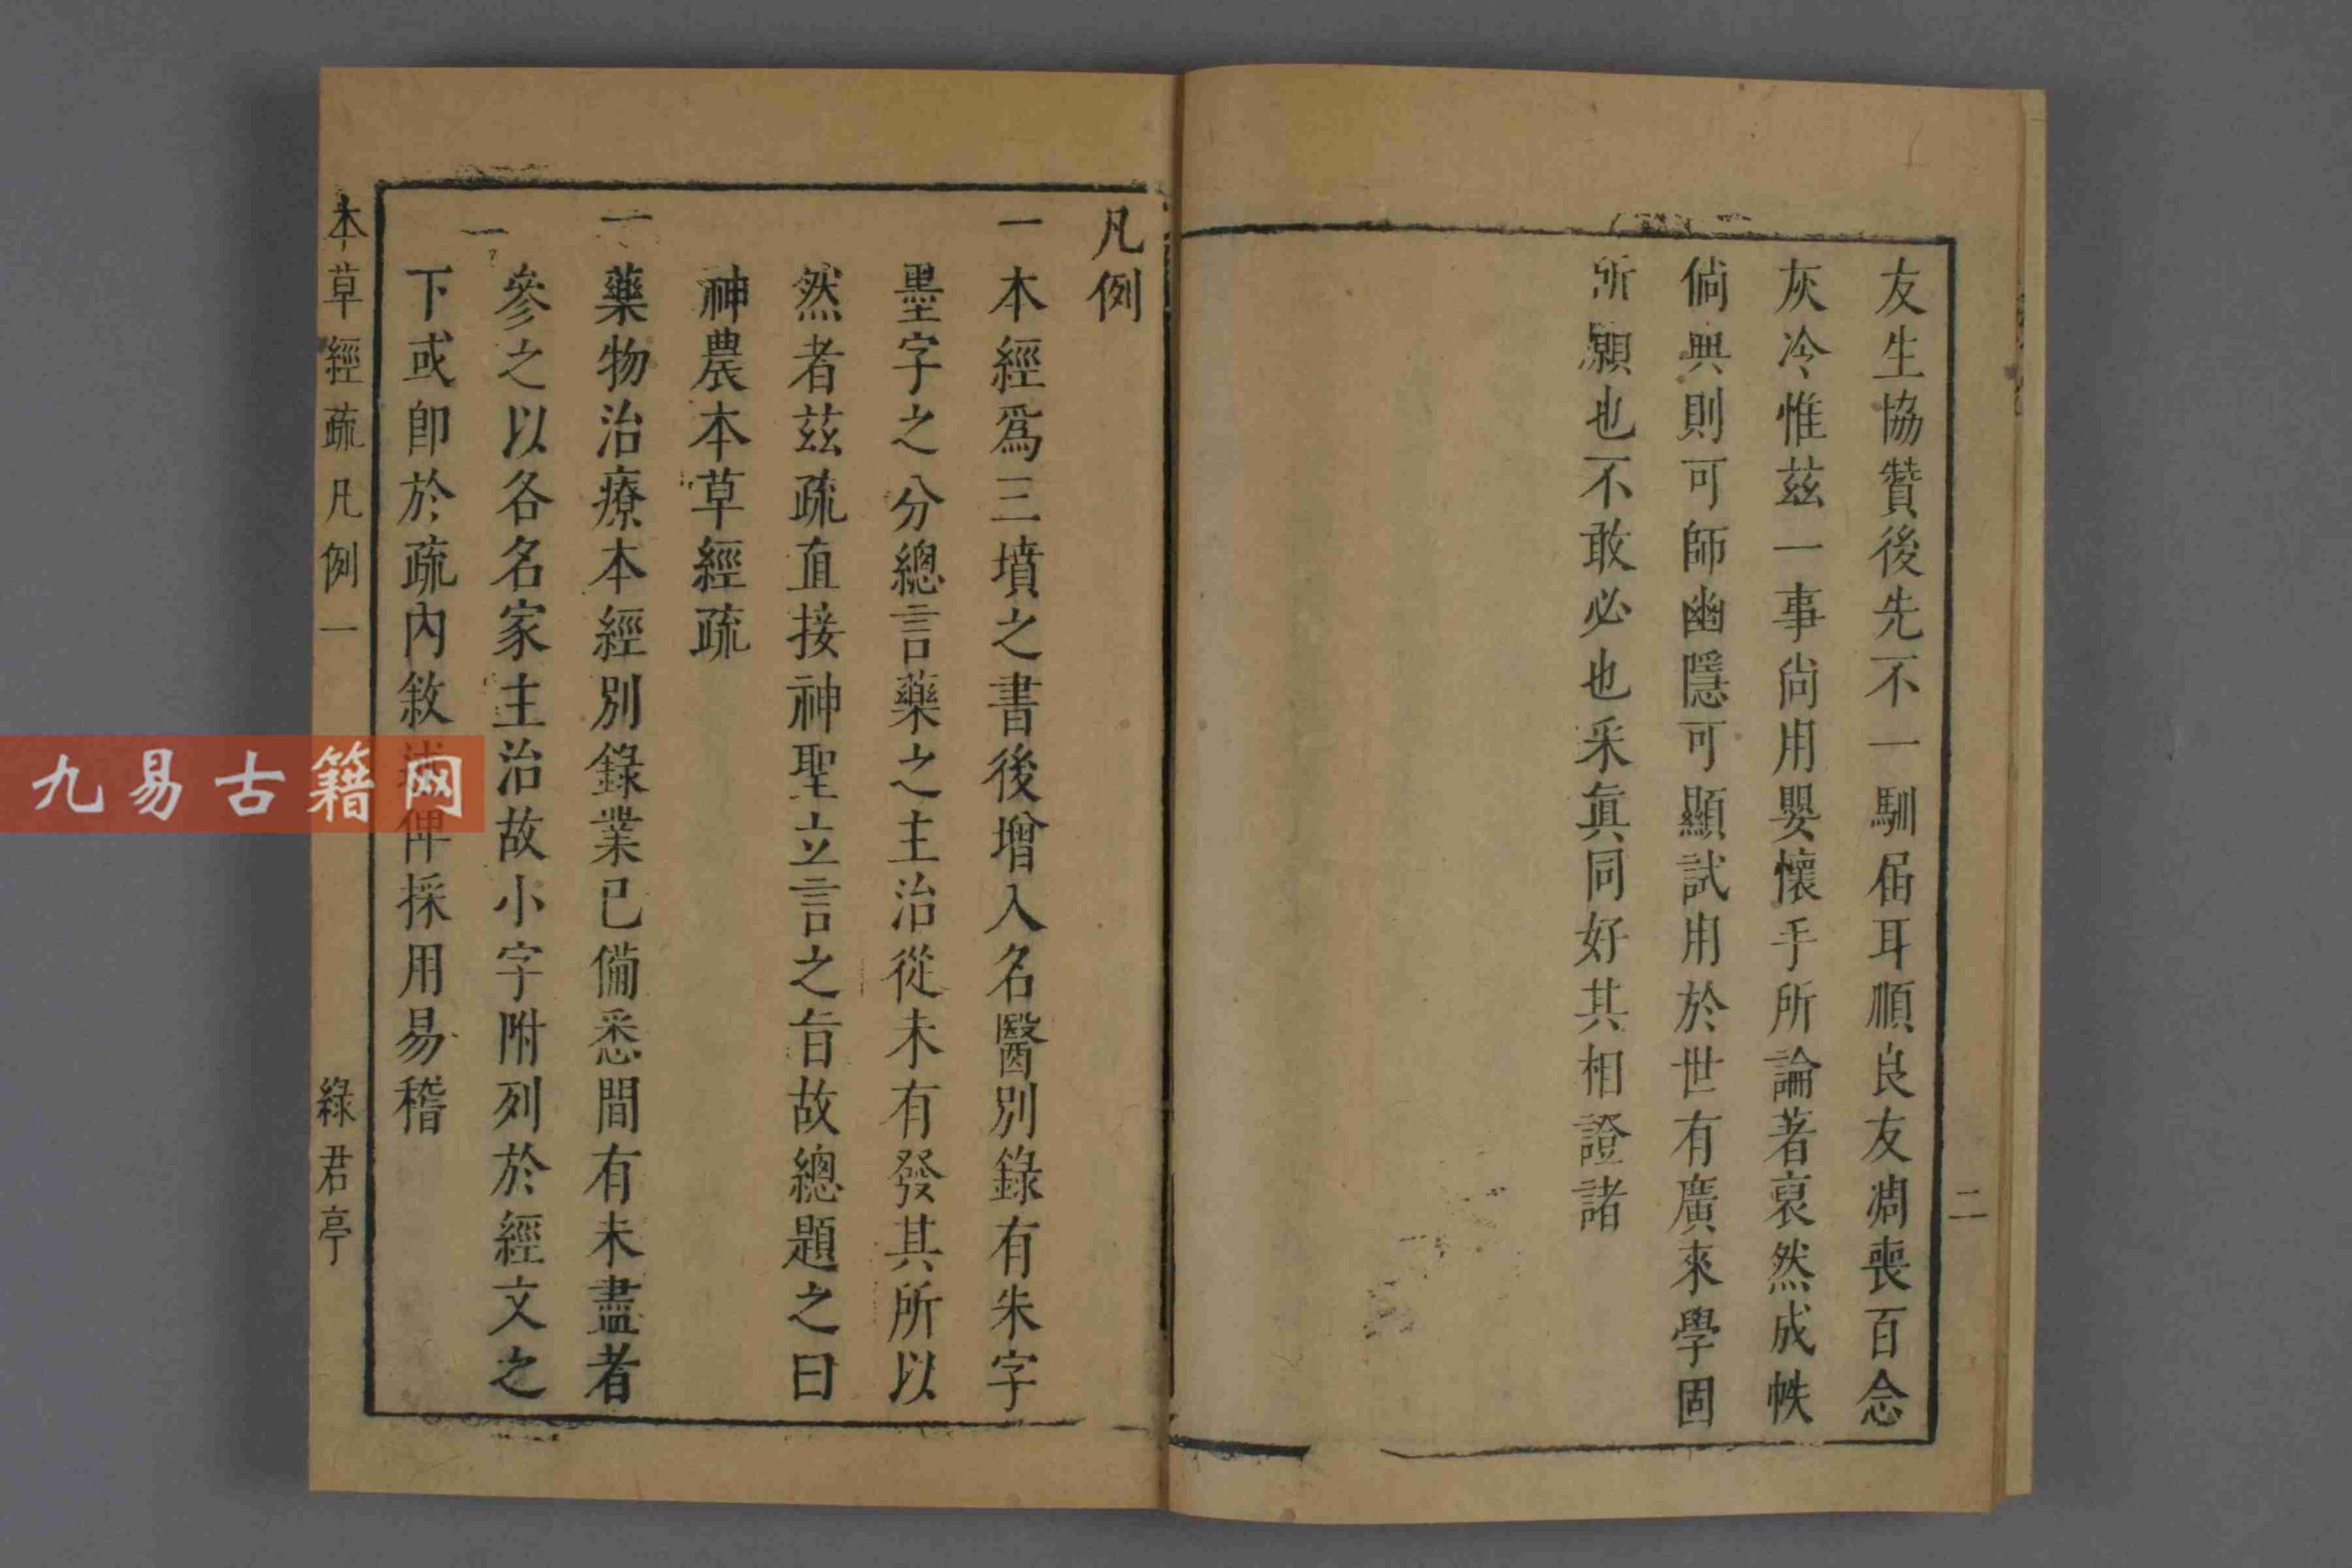 友生協贊後先不一馴届耳順良友凋喪百念
灰冷惟茲一事尙用嬰懷手所論著裒然成帙
倘興則可師幽隱可顯試用於世有廣來學固
所願也不敢必也采眞同好其相證諸
二
凡例
一本經爲三墳之書後增入名醫別錄有朱字
墨字之分總言藥之主治從未有發其所以
然者茲疏直接神聖立言之旨故總題之曰
神農本草經疏
一藥物治療本經別錄業已備悉間有未盡者
參之以各名家主治故小字附列於經文之
下或卽於疏內敘述俾採用易稽
一
本草經疏凡例一
綠君亭
九易古籍网